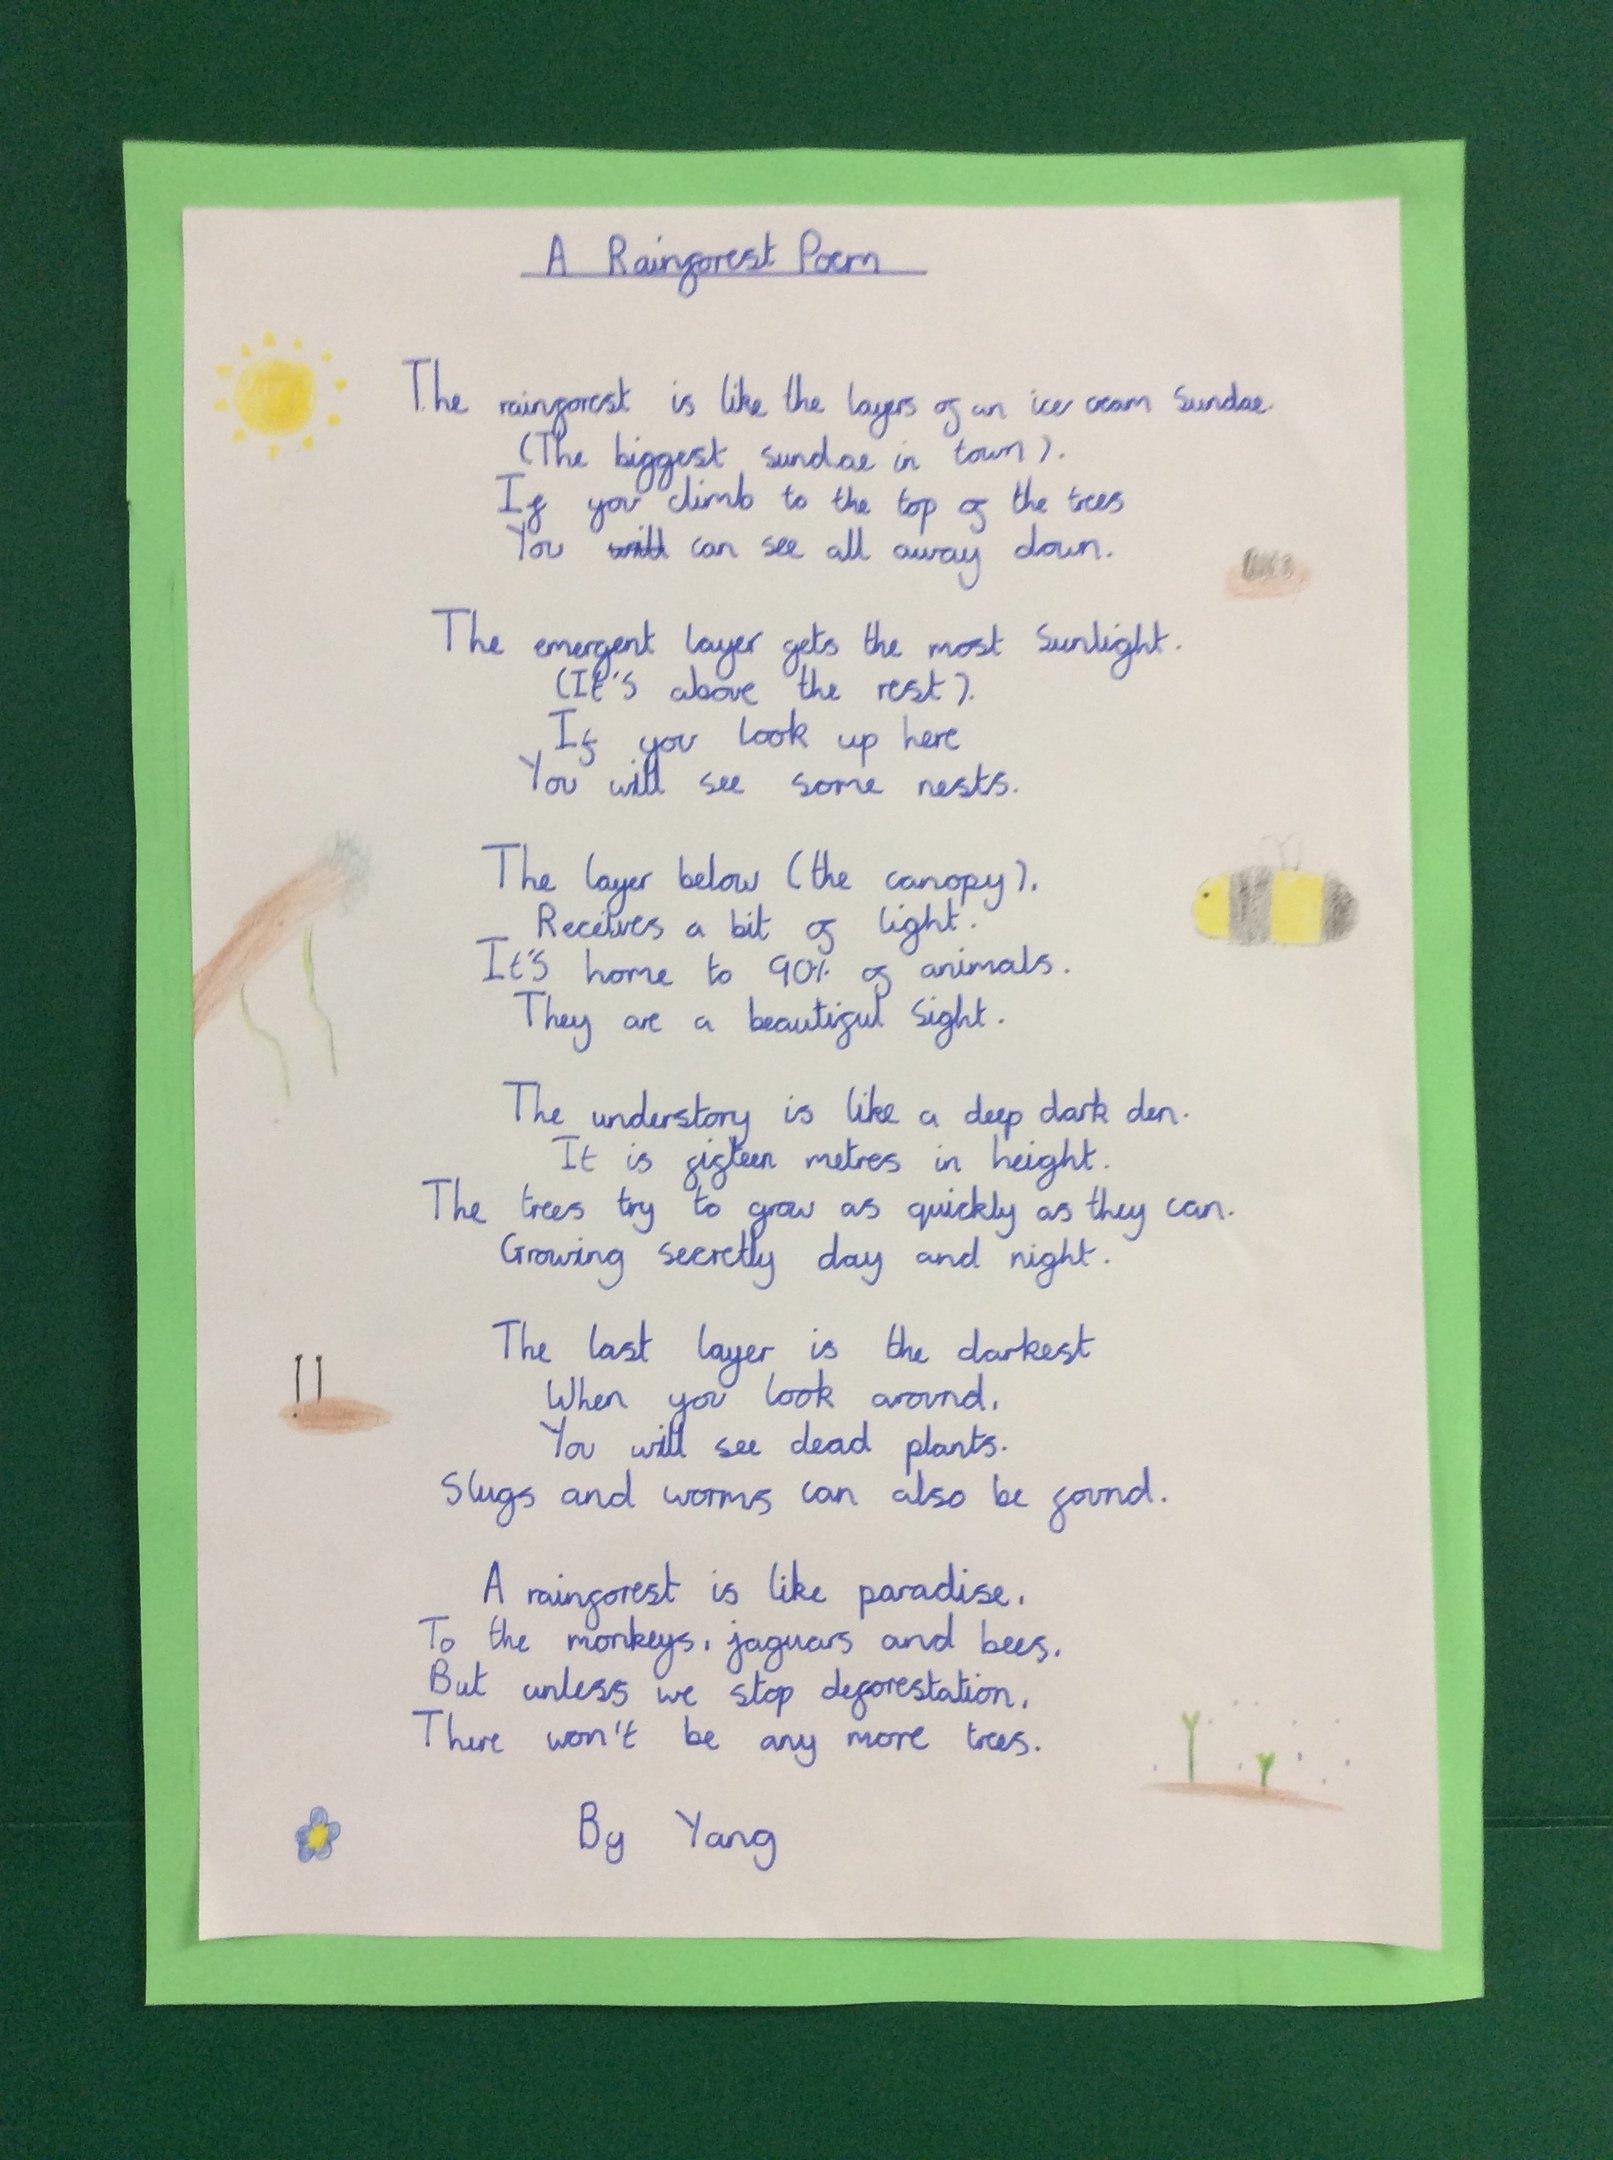 A Rainforest Poem
The rainforest is like the layers of an ice cream sundae.
(The biggest sundae in town).
If you climb to the top of the trees
You will can see all away down.
The emergent layer gets the most sunlight.
(It's above the rest).
If you look up here
You will see some nests.
The layer below (the canopy),
Receives a bit of light.
It's home to 90% of animals.
They are a beautiful sight.
The understory is like a deep dark den.
It is fifteen metres in height.
The trees try to grow as quickly as they can.
Growing secretly day and night.
The last layer is the darkest
When you look around,
You will see dead plants.
Slugs and worms can also be found.
A rainforest is like paradise,
To the monkeys, jaguars and bees,
But unless we stop deforestation,
There won't be any more trees.
By Yang